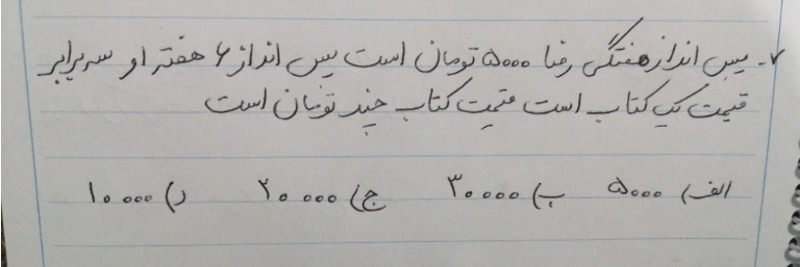 ۷- پس انداز هفتگی رضا ۵۰۰۰ تومان است پس انداز ۶ هفته او سه برابر
قیمت یک کتاب است قیمت کتاب چند تومان است
الف) ۵۰۰۰ ب) ۳۰۰۰۰ ج) ۲۰۰۰۰ د) ۱۰۰۰۰